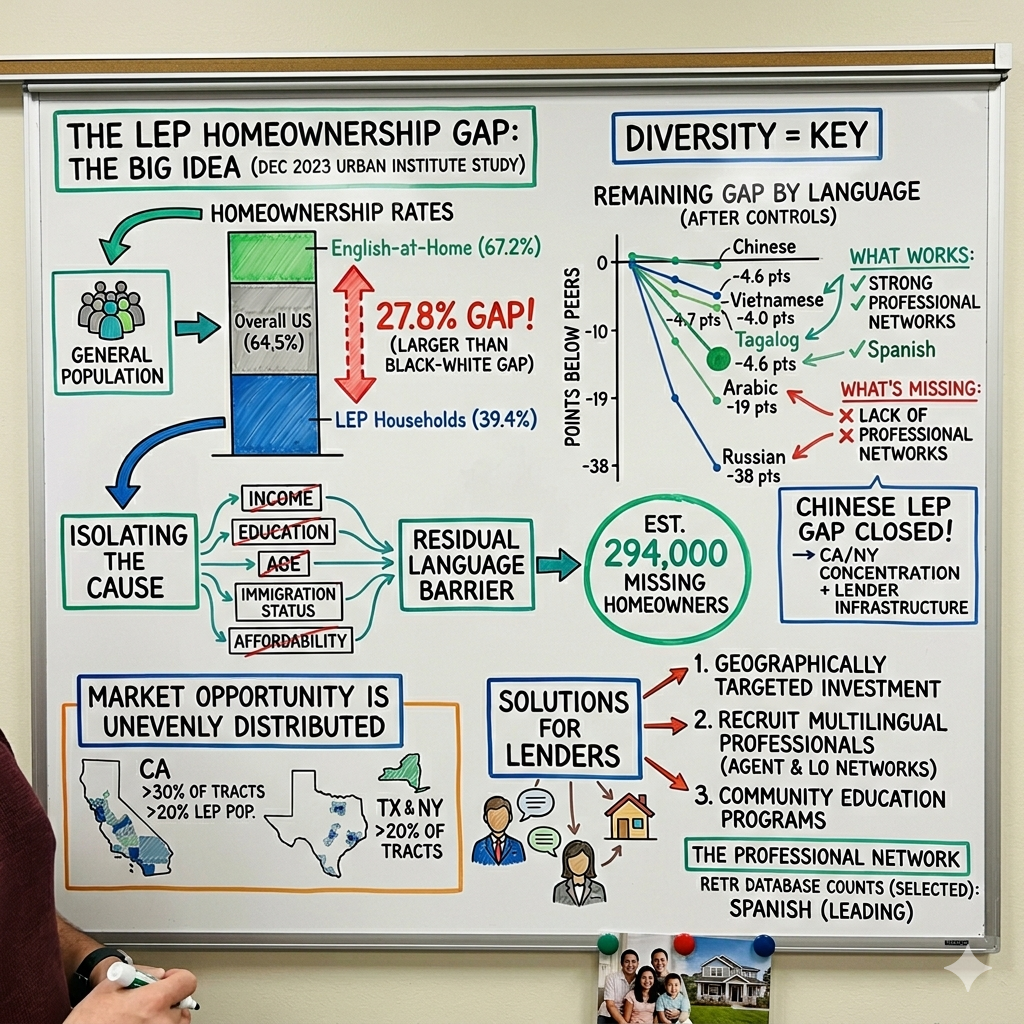 THE LEP HOMEOWNERSHIP GAP:
THE BIG IDEA (DEC 2023 URBAN INSTITUTE STUDY)
HOMEOWNERSHIP RATES
GENERAL
POPULATION
English-at-Home (67.2%)
Overall US
(64,5%)
27.8% GAP!
(LARGER THAN
BLACK-WHITE GAP)
LEP Households (39.4%)
ISOLATING
THE
CAUSE
INCOME
EDUCATION
AGE
IMMIGRATION
STATUS
AFFORDABILITY
RESIDUAL
LANGUAGE
BARRIER
EST.
294,000
MISSING
HOMEOWNERS
DIVERSITY = KEY
REMAINING GAP BY LANGUAGE
(AFTER CONTROLS)
POINTS BELOW PEERS
0
-10
-19
-38
Chinese
-4.6 pts
Vietnamese
-4.7 pts
-4.0 pts
Tagalog
-4.6 pts
Arabic
-19 pts
Russian
-38 pts
WHAT WORKS:
✓ STRONG
✓ PROFESSIONAL
NETWORKS
✓ Spanish
WHAT'S MISSING:
✗ LACK OF
✗ PROFESSIONAL
NETWORKS
CHINESE LEP
GAP CLOSED!
→ CA/NY
CONCENTRATION
+ LENDER
INFRASTRUCTURE
MARKET OPPORTUNITY IS
UNEVENLY DISTRIBUTED
CA
>30% OF TRACTS
>20% LEP POP.
TX & NY
>20% OF
TRACTS
SOLUTIONS
FOR
LENDERS
1. GEOGRAPHICALLY
TARGETED INVESTMENT
2. RECRUIT MULTILINGUAL
PROFESSIONALS
(AGENT & LO NETWORKS)
3. COMMUNITY EDUCATION
PROGRAMS
THE PROFESSIONAL NETWORK
RETR DATABASE COUNTS (SELECTED):
SPANISH (LEADING)